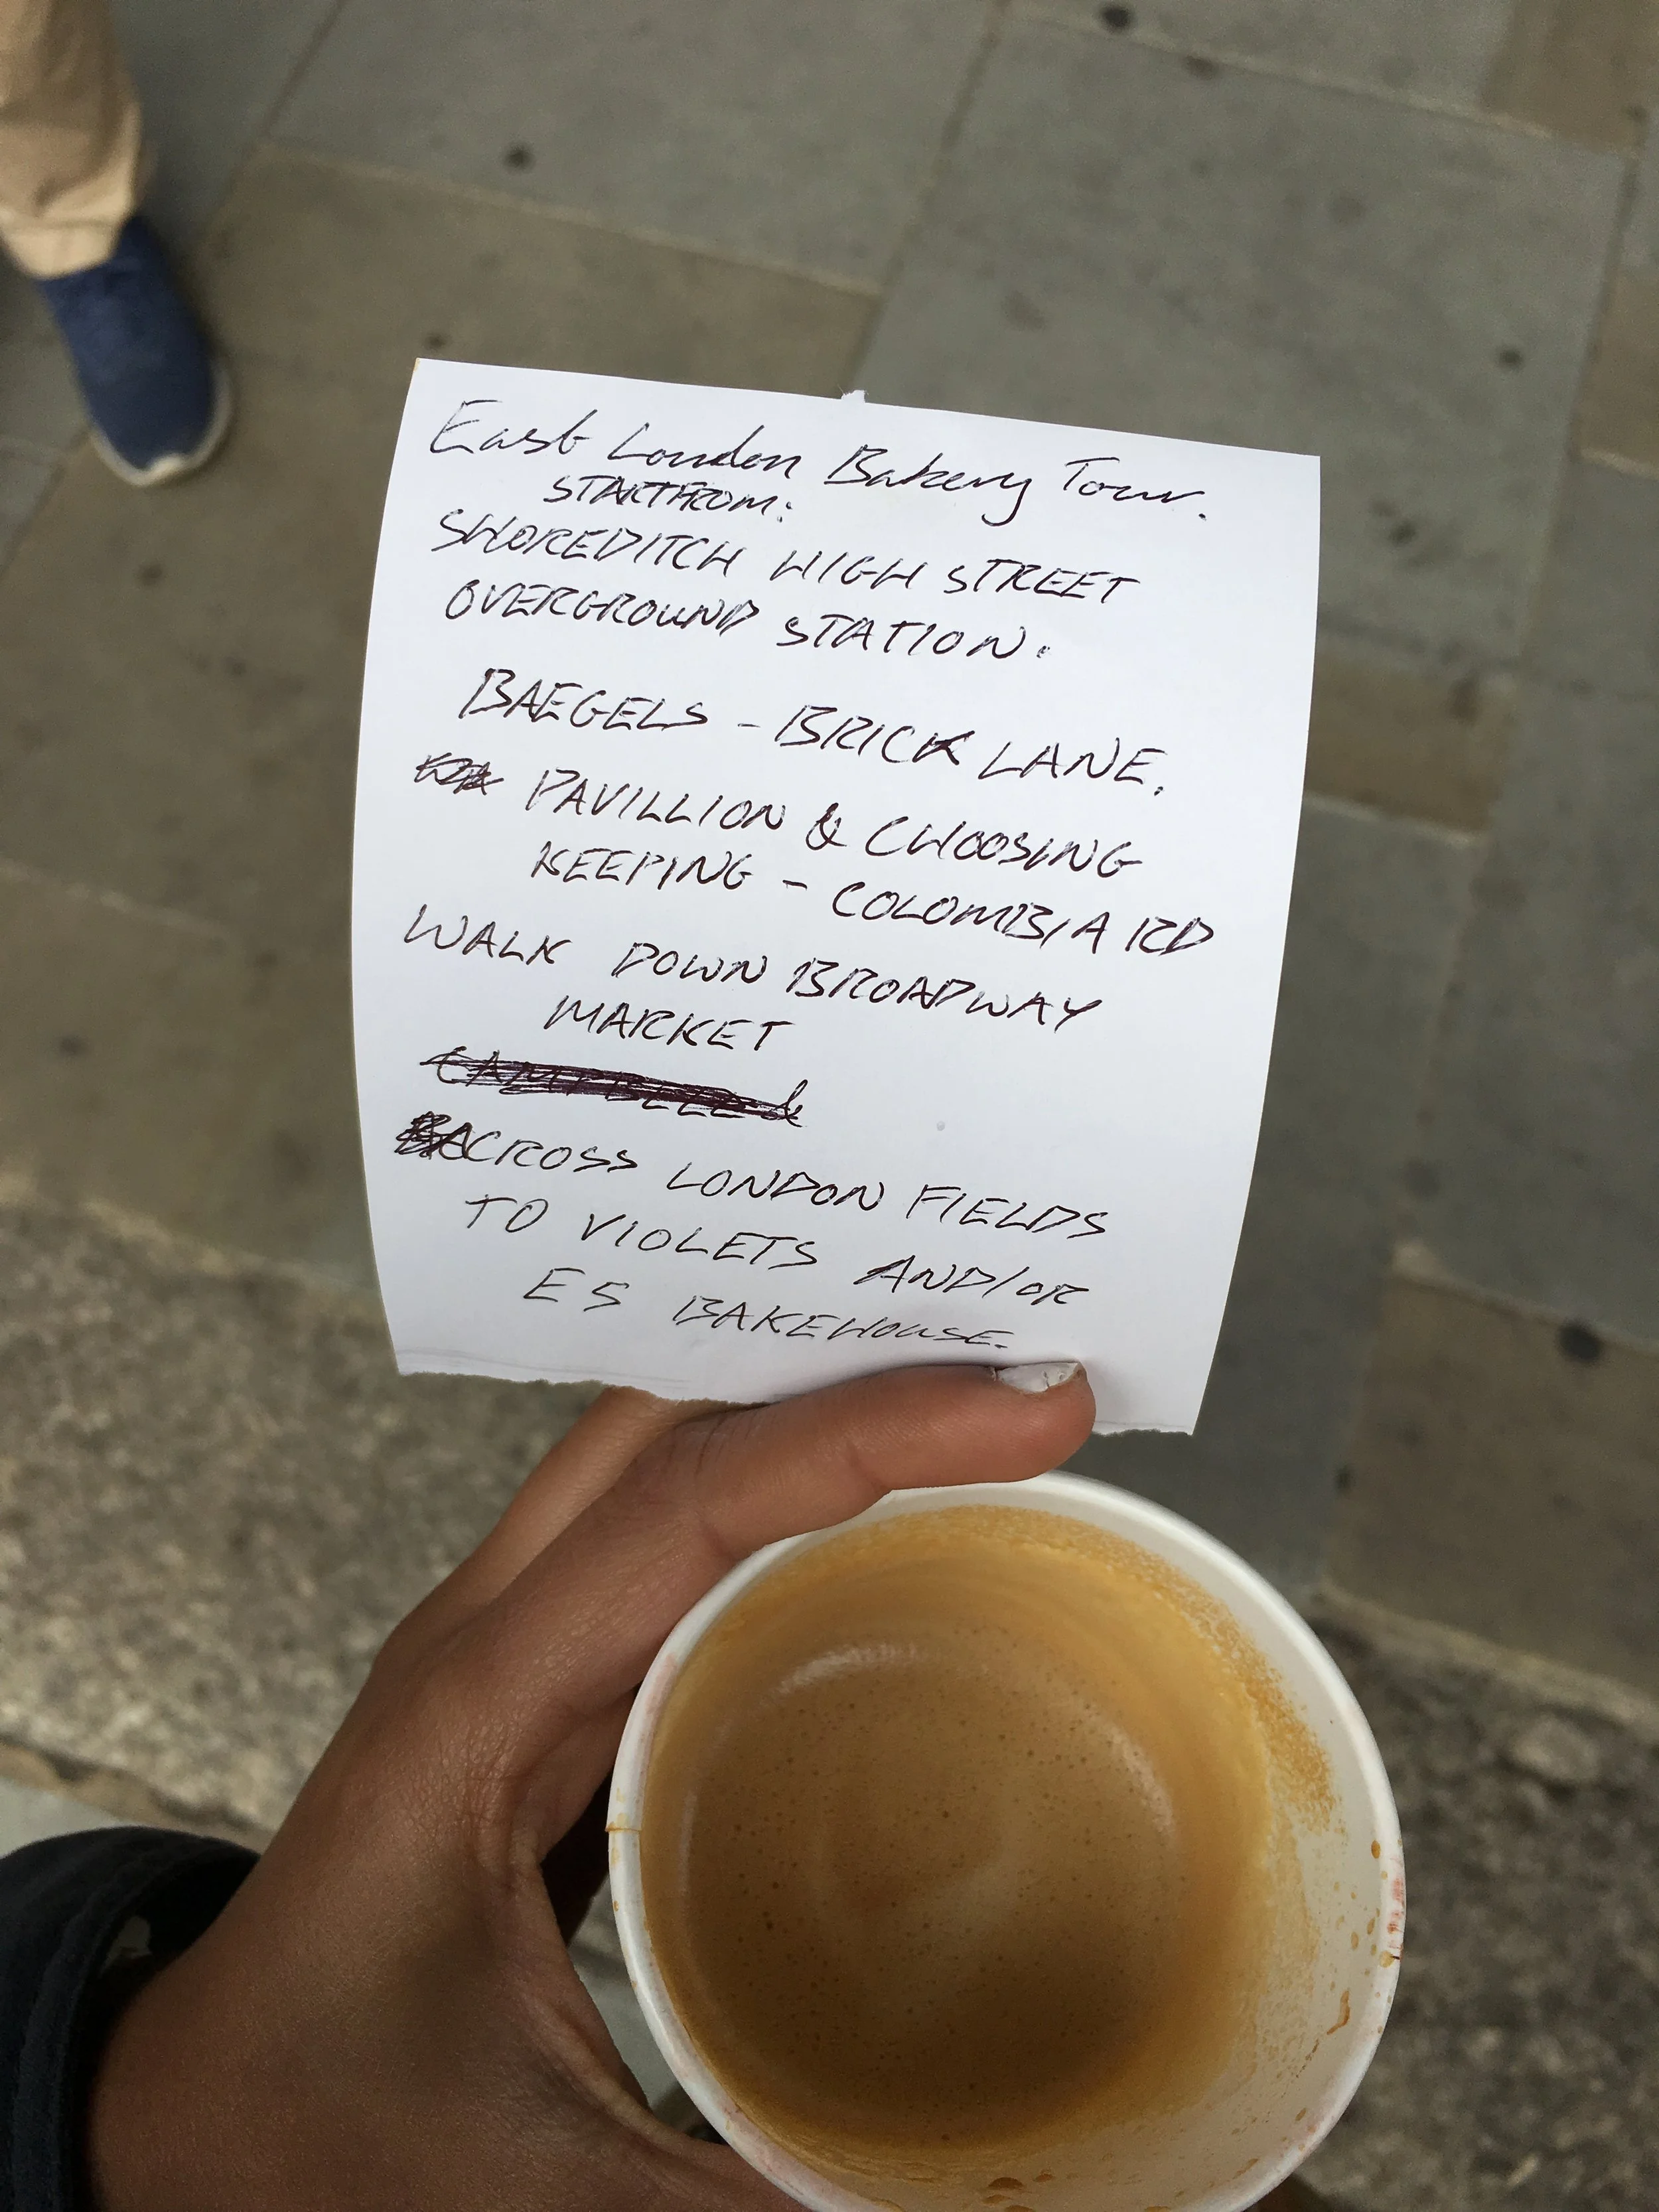 East London Bakery Tour.
START FROM:
SHOREDITCH HIGH STREET
OVERGROUND STATION.
BAEGELS - BRICK LANE.
PAVILLION & CHOOSING
KEEPING - COLOMBIA RD
WALK DOWN BROADWAY
MARKET
ACROSS LONDON FIELDS
TO VIOLETS AND/OR
E5 BAKEHOUSE.